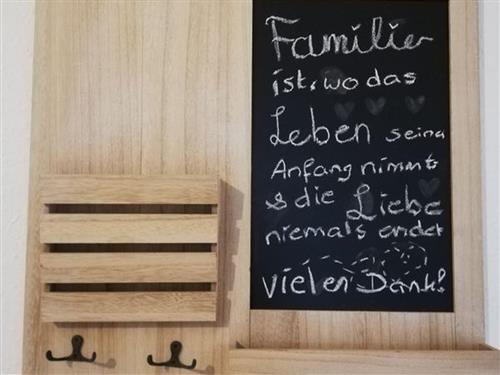 Familie
ist, wo das
Leben seinen
Anfang nimmt
& die Liebe
niemals endet
vielen Dank!